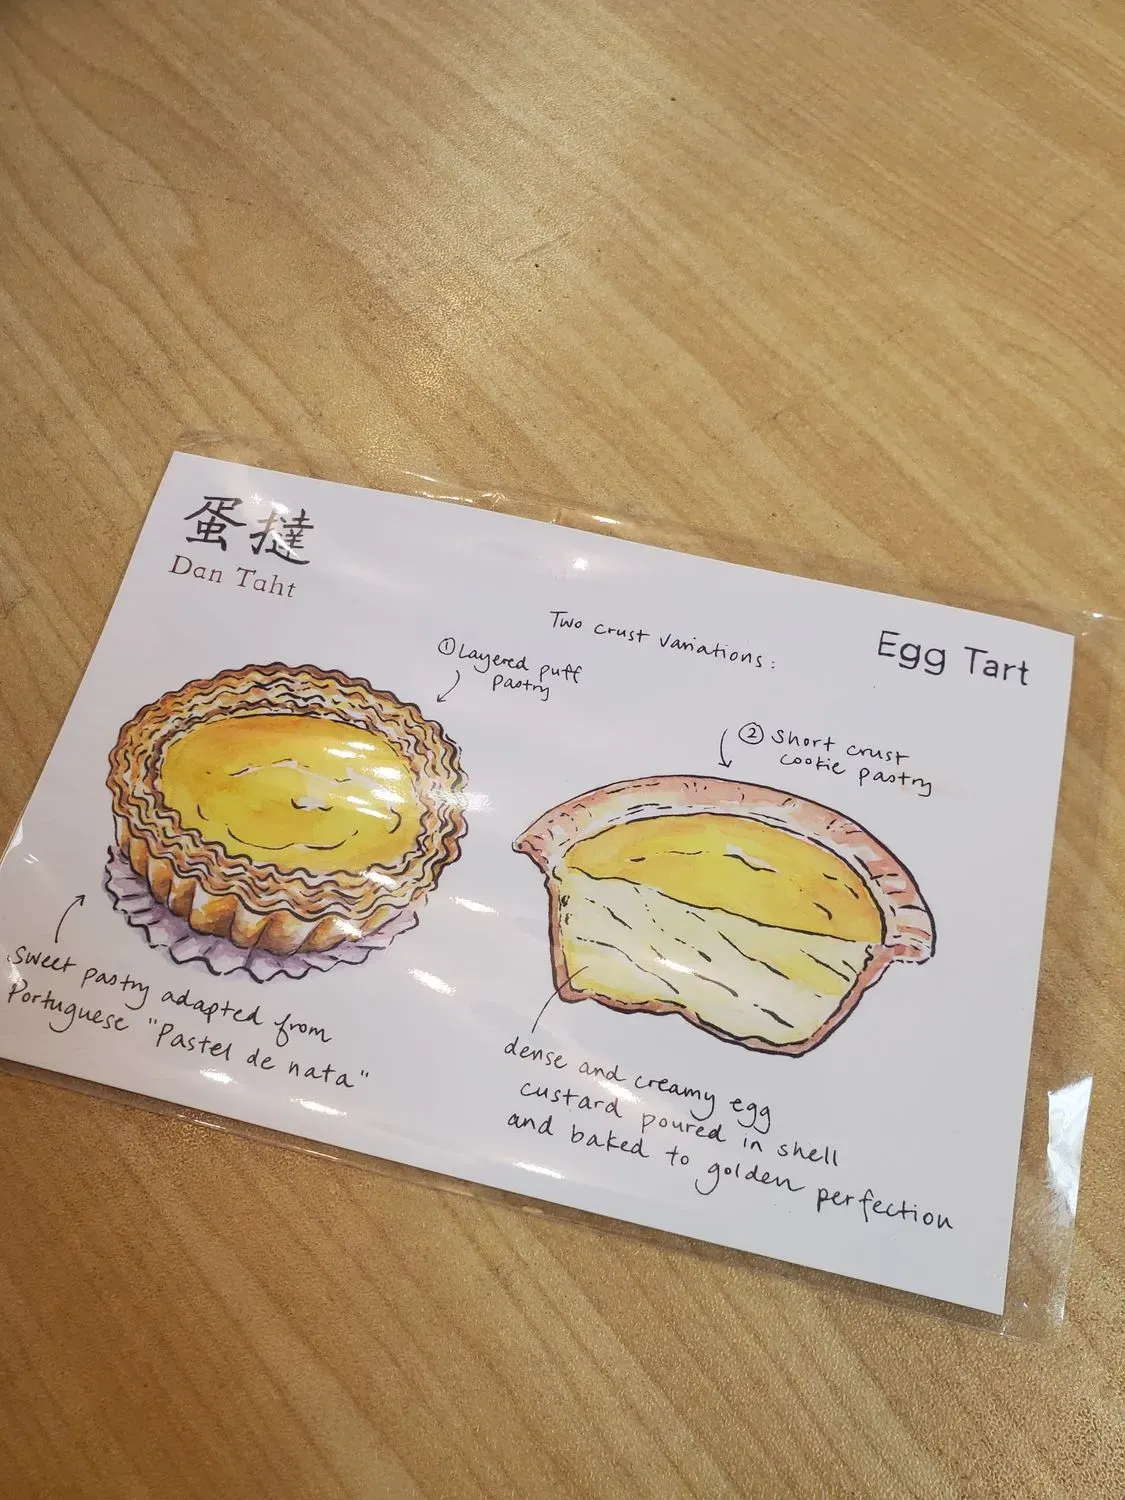 蛋撻
Dan Taht
Egg Tart
Two crust variations:
① Layered puff
pastry
② Short crust
cookie pastry
sweet pastry adapted from
Portuguese "Pastel de nata"
dense and creamy egg
custard poured in shell
and baked to golden perfection